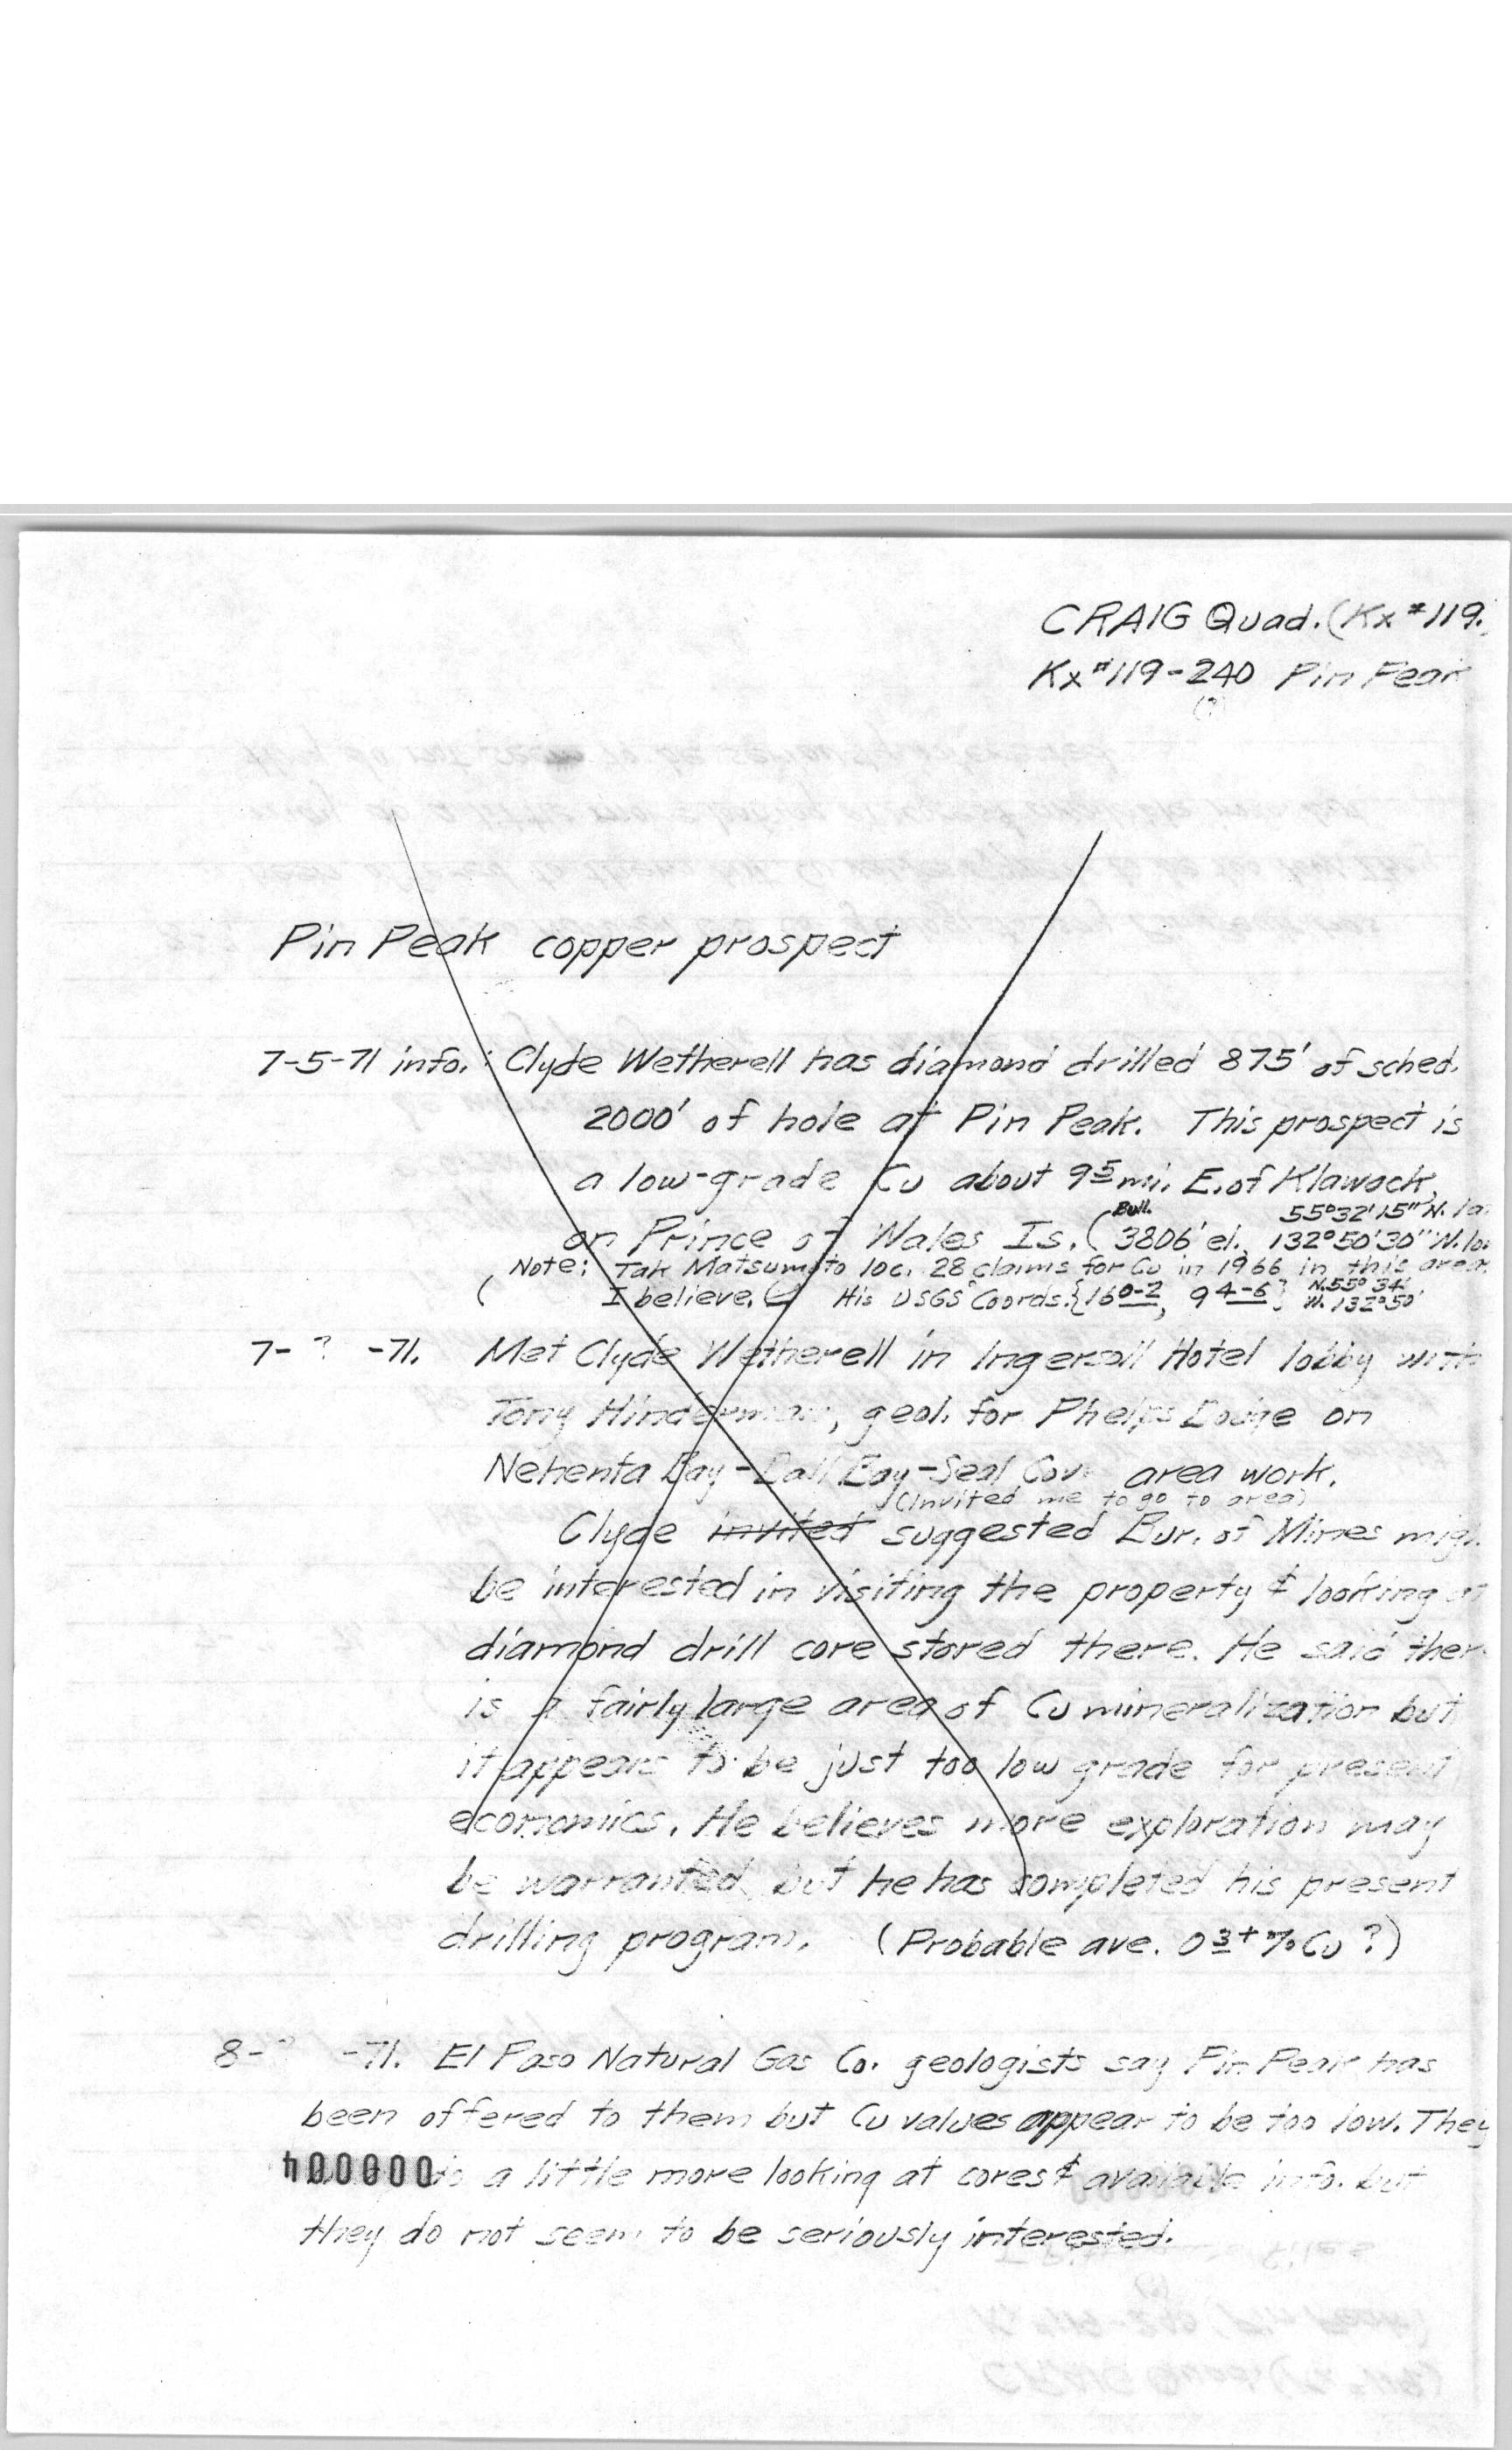 CRAIG Quad. (Kx #119.
Kx #119-240 Pin Peak
(?)
Pin Peak copper prospect
7-5-71 info.: Clyde Wetherell has diamond drilled 875' of sched.
2000' of hole at Pin Peak. This prospect is
a low-grade Cu about 9 5 mi. E. of Klawock,
on Prince of Wales Is. (Bull. 3806' el., 55°32'15" N. la
132°50'30" W. lo
Note: Tak Matsumoto loc. 28 claims for Cu in 1966 in this area
( I believe. His USGS Coords. {160-2, 94-6} N. 55° 34'
W. 132° 50'
7- ? -71. Met Clyde Wetherell in Ingersoll Hotel lobby with
Tony Hinderman, geol. for Phelps Dodge on
Nehenta Bay-Dall Bay-Seal Cove area work.
(Invited me to go to area)
Clyde invited suggested Bur. of Mines migh
be interested in visiting the property & looking at
diamond drill core stored there. He said ther
is a fairly large area of Cu mineralization but
it appears to be just too low grade for present
economics. He believes more exploration may
be warranted but he has completed his present
drilling program. (Probable ave. 0 3+ % Cu ?)
8- ? -71. El Paso Natural Gas Co. geologists say Pin Peak has
been offered to them but Cu values appear to be too low. They
400000 do a little more looking at cores & available info. but
they do not seem to be seriously interested.